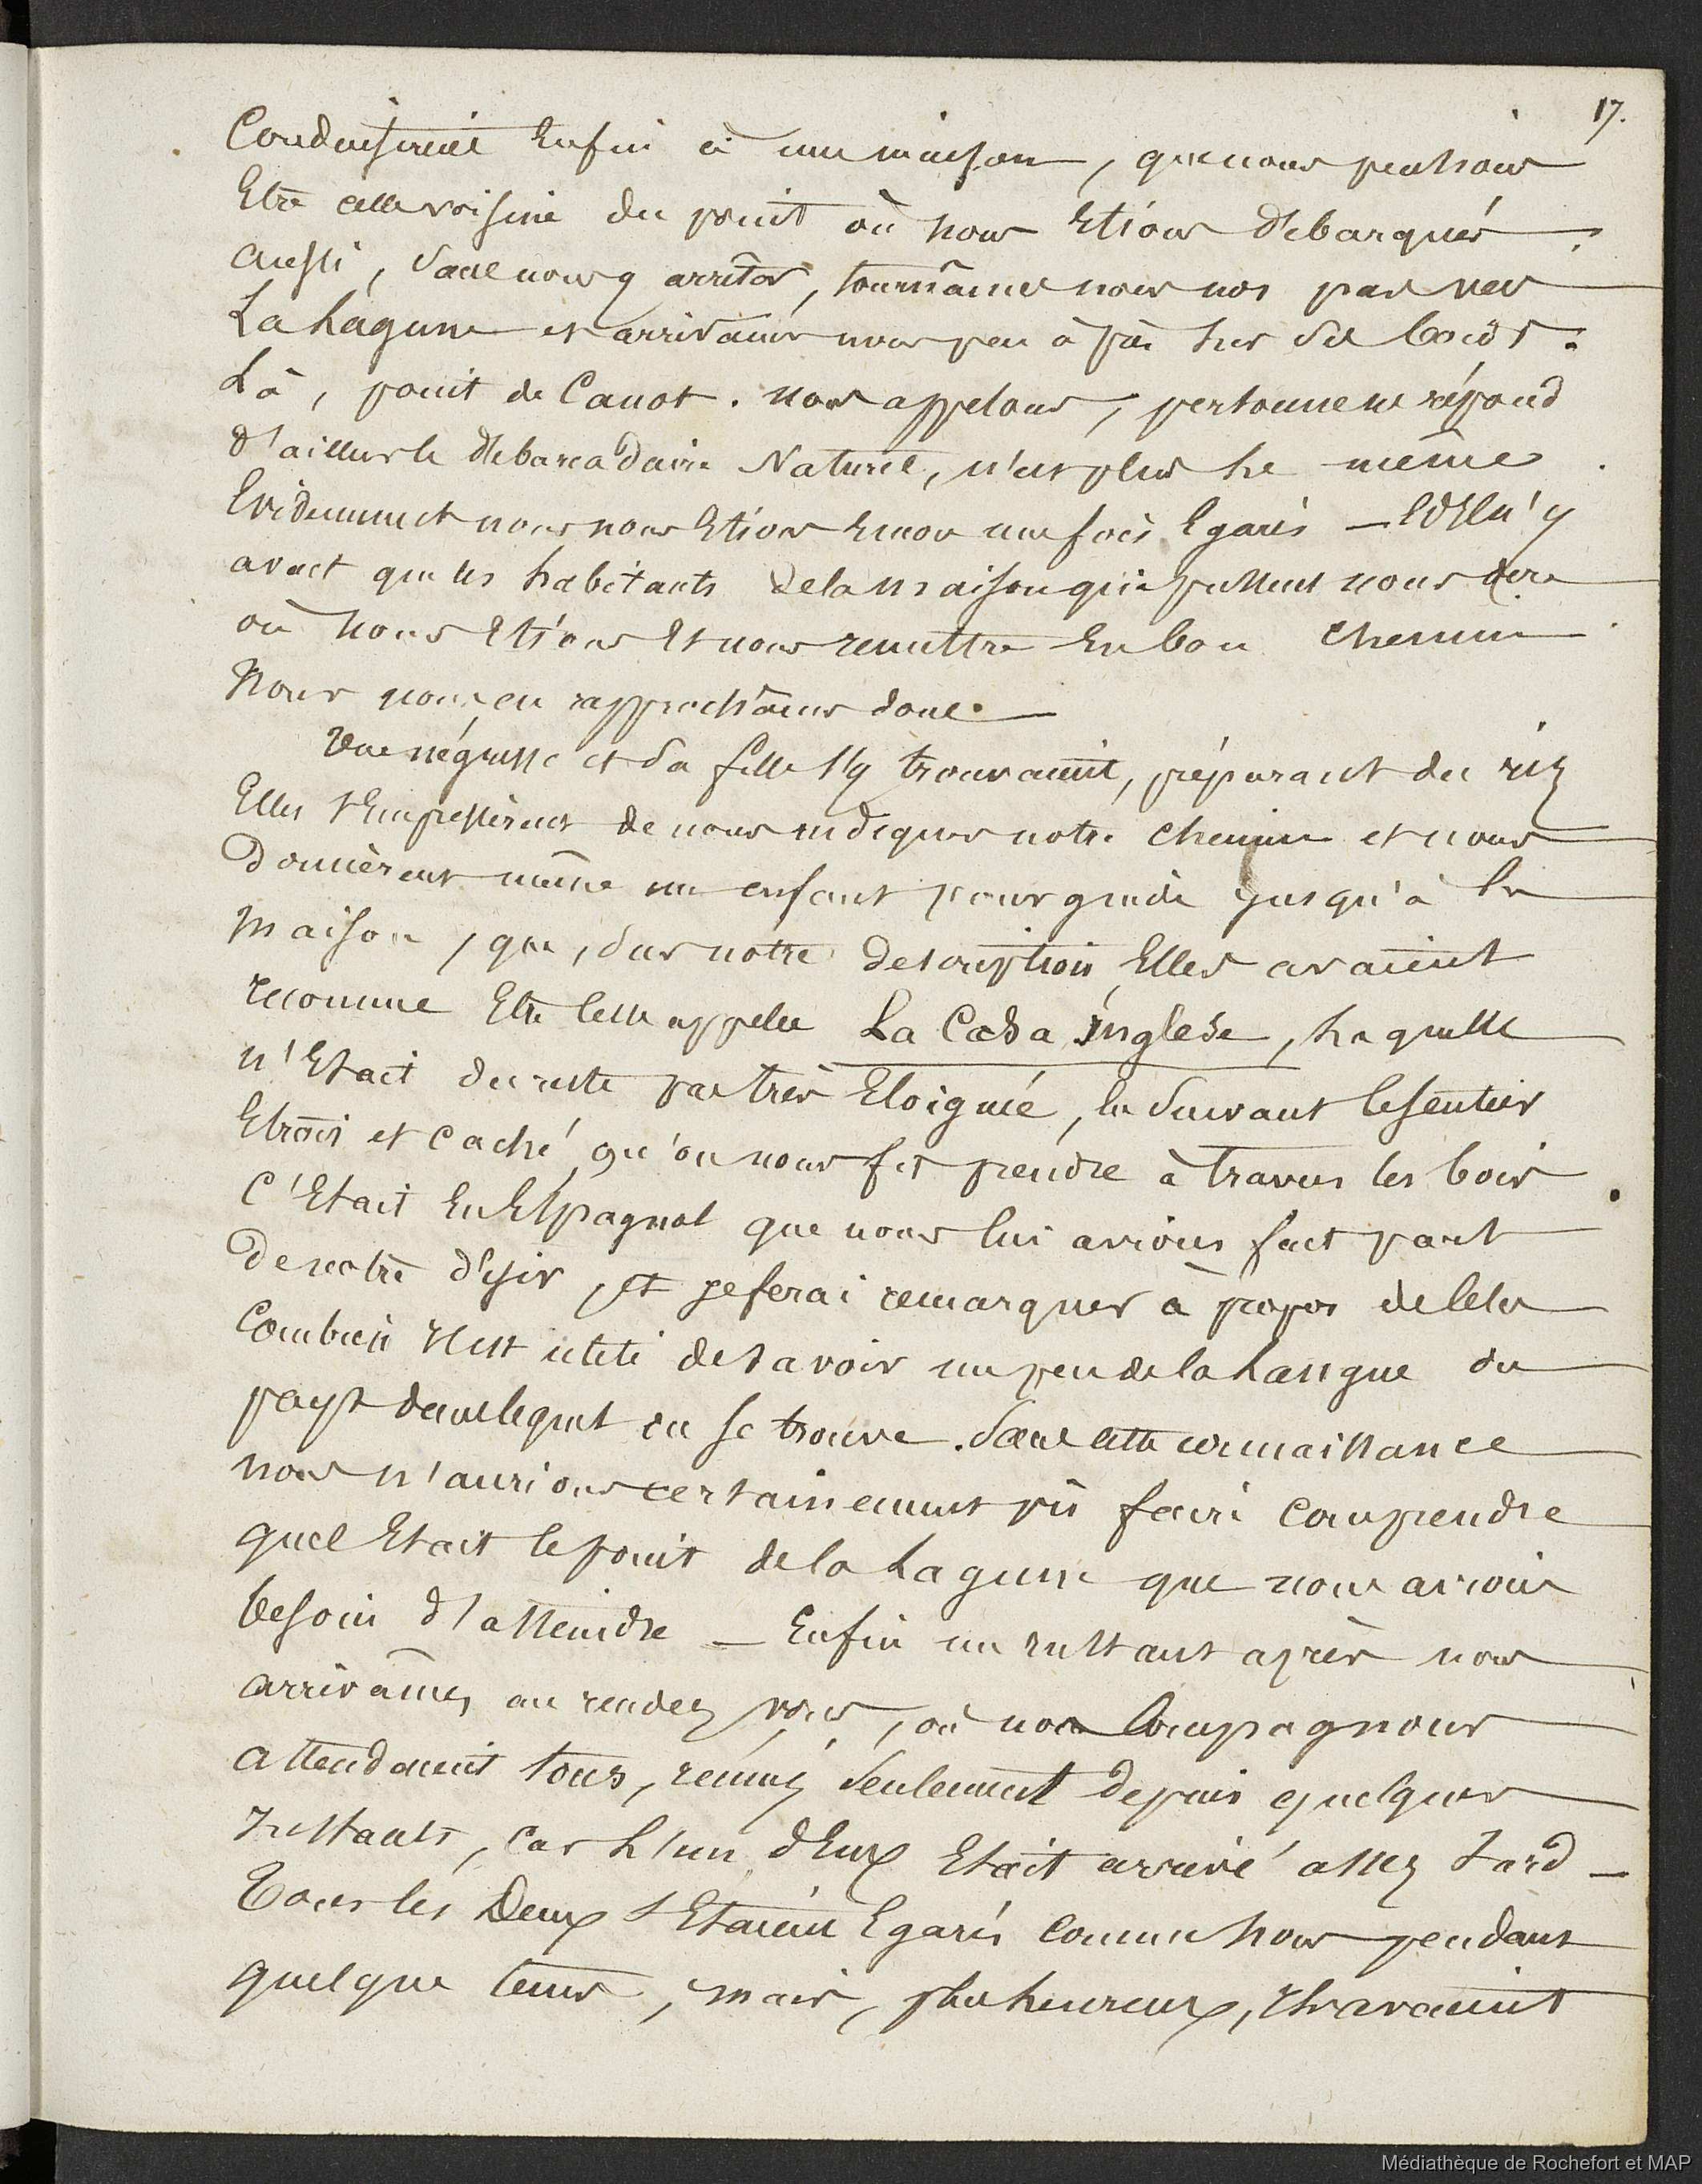 17.
Conduisirent Enfin à une maison, que nous pensions
Etre celle voisine du point où nous Etions débarqués.
Aussi, sans nous y arrêter, tournâmes nous nos pas vers
La Lagune et arrivâmes nous peu à peu sur ses bords.
Là, point de Canot. nous appelons, personne ne répond
d'ailleurs le débarcadaire Naturel, n'est plus le même.
Evidemment nous nous Etions encore une fois Egarés — Et Il n'y
avait que les habitants de la maison qui pussent nous dire
où nous Etions Et nous remettre En bon Chemin.
Nous nous en rapprochâmes donc. —
Une négresse et sa fille s'y trouvaient, préparant du riz
Elles s'Empressèrent de nous indiquer notre chemin et nous
donnèrent même un enfant pour guide jusqu'à la
Maison, que, sur notre description, Elles avaient
reconnue Etre Celle appelée La Casa inglese, laquelle
n'Etait du reste pas très Eloignée, En Suivant le sentier
Etroit et Caché qu'on nous fit prendre à travers les bois.
C'Etait En Espagnol que nous lui avions fait part
De notre désir, Et je ferai remarquer à propos de Cela
Combien Il est utile de savoir un peu de la Langue du
pays dans lequel on se trouve. Sans cette connaissance
nous n'aurions certainement pû faire Comprendre
quel Etait le point de la Lagune que nous avions
besoin d'atteindre — Enfin un instant après nous
arrivâmes au rendez vous, où nos Compagnons
attendaient tous, réunis seulement depuis quelques
Instants, Car L'un d'Eux Etait arrivé assez tard —
Tous les Deux s'Etaient Egarés Comme nous pendant
quelque tems, mais, plus heureux, Ils avaient
Médiathèque de Rochefort et MAP